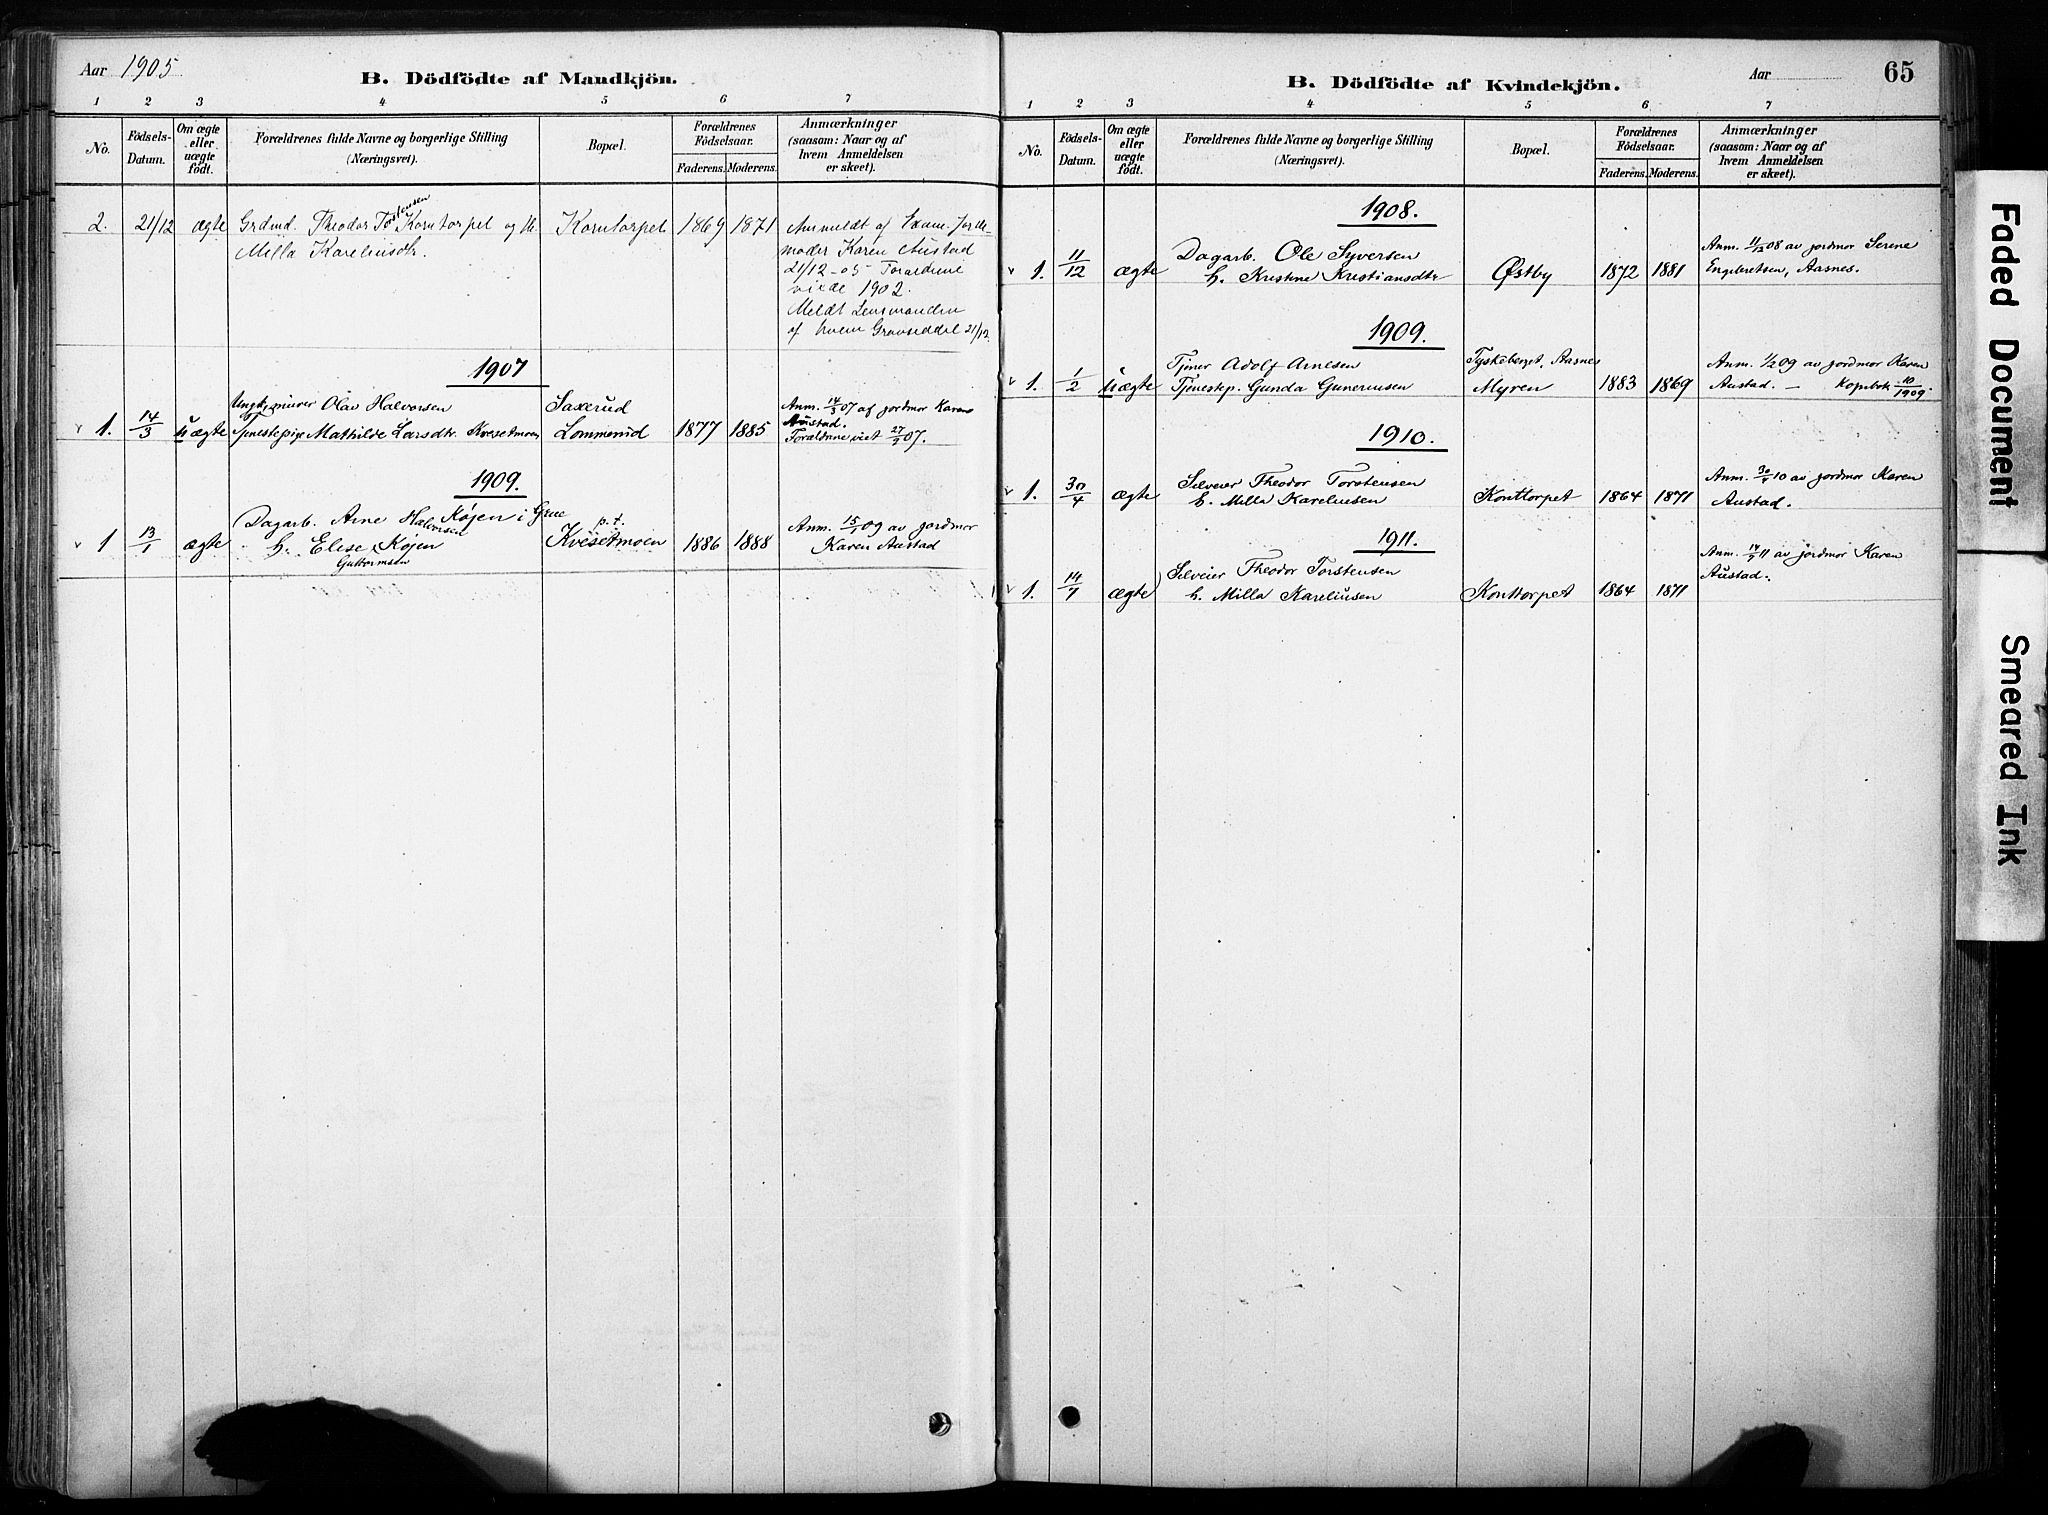 Aar 1905
B. Dödfödte af Mandkjön.
1 2 3 4 5 6 7
No.
Födsels-
Datum.
Om ægte
eller
uægte
födt.
Forældrenes fulde Navne og borgerlige Stilling
(Næringsvei).
Bopæl.
Forældrenes
Födselsaar.
Faderens. Moderens.
Anmærkninger
(saasom: Naar og af
hvem Anmeldelsen
er skeet).
2. 21/12 ægte Grdmd. Theodor Torstensen Korntorpet og H. Korntorpet 1869 1871 Anmeldt af Exam. Jorde-
Milla Kareliusdtr.
moder Karen Austad
21/12-05 Forældrene
viede 1902.
Meldt Lensmanden
af hvem Gravseddel 21/12.
1907
Ungk. murer Olav Halvorsen Saxerud Anm. 14/3 07 af jordmor Karen
v 1. 14/3 uægte Tjenestepige Mathilde Larsdtr. Kvesetmoen Lommerud 1877 1885 Austad.
Forældrene viet 27/5 07.
1909.
Dagarb. Arne Halvorsen Köjen i Grue p.t. Anm. 15/1 09 av jordmor
v 1 13/1 ægte h. Elise Guttormsen Köjen Kvesetmoen 1886 1888 Karen Austad
B. Dödfödte af Kvindekjön.
Aar
65
1 2 3 4 5 6 7
No.
Födsels-
Datum.
Om ægte
eller
uægte
födt.
Forældrenes fulde Navne og borgerlige Stilling
(Næringsvei).
Bopæl.
Forældrenes
Födselsaar.
Faderens. Moderens.
Anmærkninger
(saasom: Naar og af
hvem Anmeldelsen
er skeet).
1908.
Dagarb. Ole Syversen Anm. 11/12 08 av jordmor Serene
v 1. 11/12 ægte h. Kristine Kristiansdtr Østby 1872 1881 Engebretsen, Aasnes.
1909.
Tjener Adolf Arnesen Tyskeberget, Aasnes Anm. 1/2 09 av jordmor Karen
v 1. 1/2 uægte Tjenestep. Gunda Guneriusen Myren 1883 1869 Austad. — Kopibok 10/1909.
1910.
Selveier Theodor Torstensen Anm. 30/4 10 av jordmor Karen
v 1. 30/4 ægte h. Milla Kareliusen Konttorpet 1864 1871 Austad.
1911.
Selveier Theodor Torstensen Anm. 14/7 11 av jordmor Karen
v 1. 14/7 ægte h. Milla Kareliusen Konttorpet 1864 1871 Austad.
Faded Document
Smeared Ink